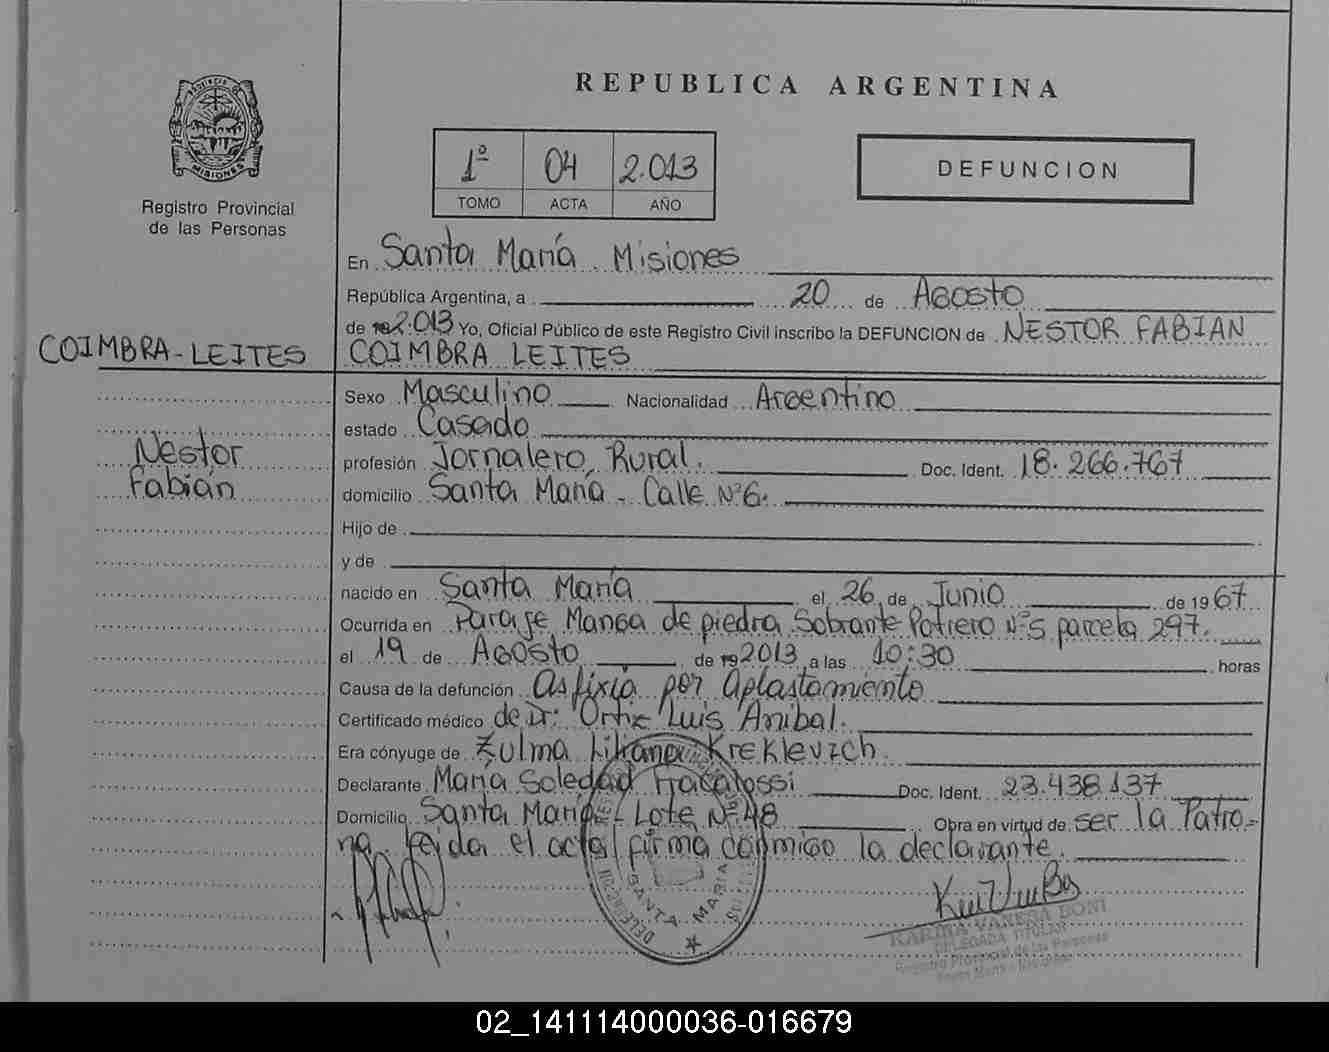 REPUBLICA ARGENTINA
PROVINCIA DE
MISIONES
Registro Provincial
de las Personas
1º 04 2.013
TOMO ACTA AÑO
DEFUNCION
En Santa María. Misiones
República Argentina, a 20 de Agosto
de 19 2.013 Yo, Oficial Público de este Registro Civil inscribo la DEFUNCION de NESTOR FABIAN
COIMBRA LEITES
COIMBRA-LEITES
Nestor
Fabián
Sexo Masculino Nacionalidad Argentino
estado Casado
profesión Jornalero Rural. Doc. Ident. 18.266.767
domicilio Santa María - Calle Nº6.
Hijo de
y de
nacido en Santa María el 26 de Junio de 1967
Ocurrida en Paraje Manga de piedra Sobrante Potrero Nº5 parcela 297.
el 19 de Agosto de 19 2013 a las 10:30 horas
Causa de la defunción Asfixia por aplastamiento
Certificado médico de Dr: Ortiz Luis Anibal.
Era cónyuge de Zulma Liliana Kreklevich.
Declarante María Soledad Fracalossi Doc. Ident. 23.438.137
Domicilio Santa María - Lote Nº 48 Obra en virtud de ser la Patro-
na. Leida el acta firma conmigo la declarante.
SANTA MARIA
KARINA VANESA BONI
DELEGADA TITULAR
Registro Provincial de las Personas
Santa María - Misiones
02_141114000036-016679